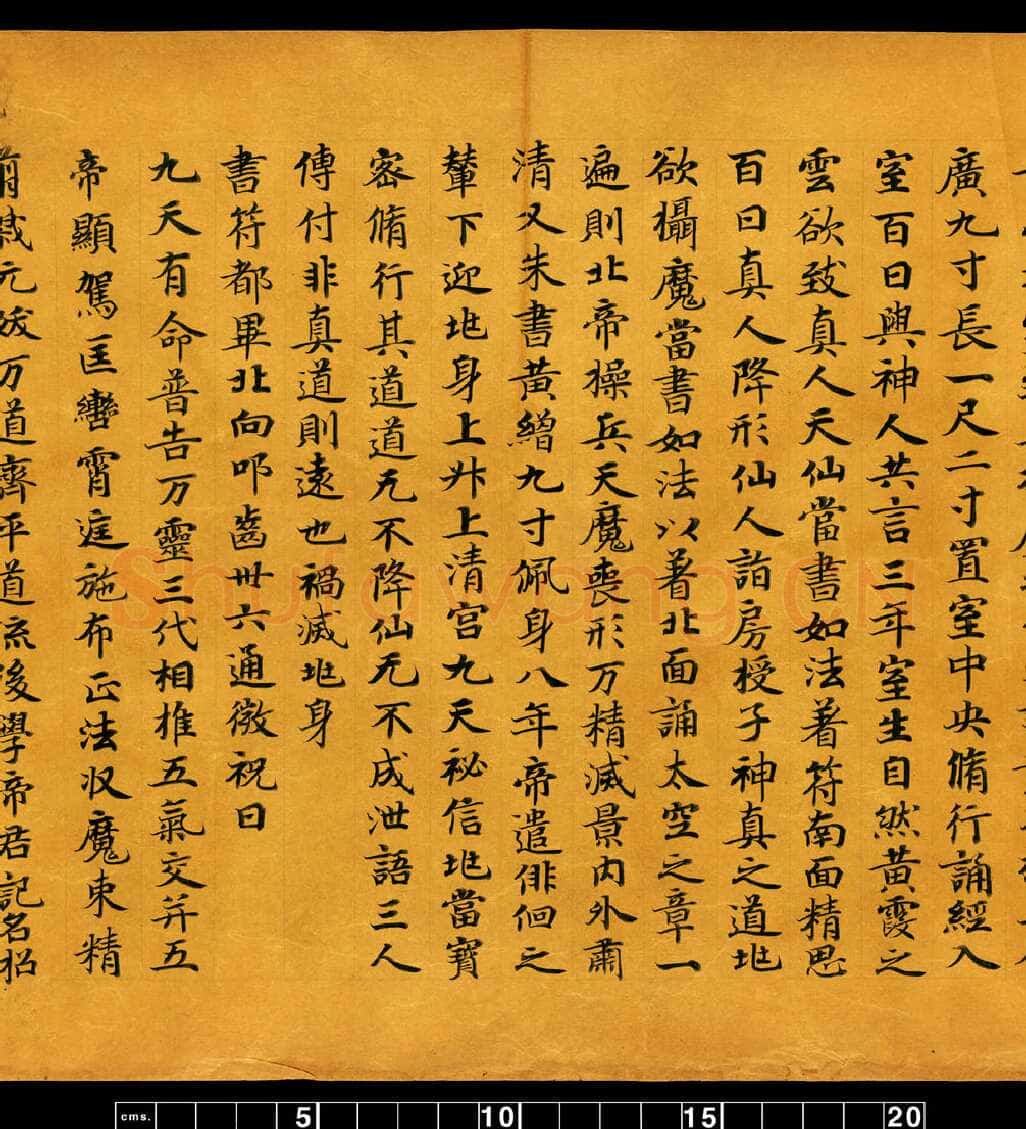 廣九寸長一尺二寸置室中央脩行誦經入
室百日與神人共言三年室生自然黃霞之
雲欲致真人天仙當書如法著符南面精思
百日真人降形仙人詣房授子神真之道地
欲攝魔當書如法以著北面誦太空之章一
遍則北帝操兵天魔喪形万精滅景內外肅
清又朱書黃繒九寸佩身八年帝遣俳佪之
輦下迎地身上升上清宮九天祕信地當寶
密脩行其道道无不降仙无不成泄語三人
傳付非真道則遠也禍滅地身
書符都畢北向叩齒卅六通微祝曰
九天有命普告万靈三代相推五氣交并五
帝顯駕匡轡霄庭施布正法收魔束精
道濟平道流後學帝君記名
Shufawang.CN
cms. 5 10 15 20